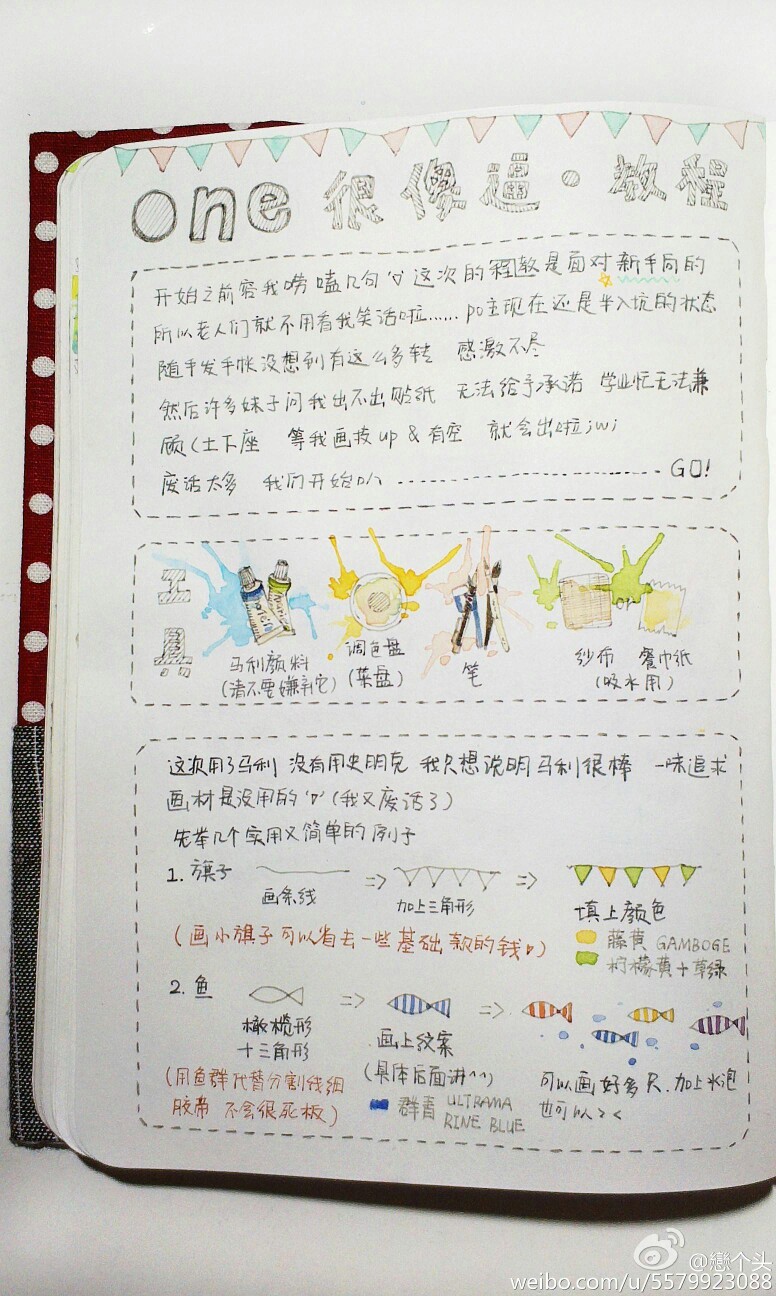 one 很像逼·教程
开始之前容我唠嗑几句'▽'这次的程教是面对新手向的
所以老人们就不用看我笑话啦……po主现在还是半入坑的状态
随手发手帐没想到有这么多转 感激不尽
然后许多妹子问我出不出贴纸 无法给予承诺 学业忙无法兼
顾(土下座 等我画技up & 有空 就会出啦;w;
废话太多 我们开始叭 GO!
工具
马利颜料
(请不要嫌弃它)
调色盘
(菜盘)
笔
纱布 or 餐巾纸
(吸水用)
这次用了马利 没有用史明克 我只想说明马利很棒 一味追求
画材是没用的'▽'(我又废话了)
先举几个实用又简单的例子
1. 旗子 => =>
画条线 加上三角形 填上颜色
(画小旗子可以省去一些基础款的钱♡)
藤黄 GAMBOGE
柠檬黄+草绿
2. 鱼 => =>
橄榄形
+三角形
画上纹案
(具体后面讲^^)
群青 ULTRAMA
RINE BLUE
(用鱼群代替分割线细
胶带 不会很死板)
可以画好多只.加上水泡
也可以><
@戀个头
weibo.com/u/5579923088